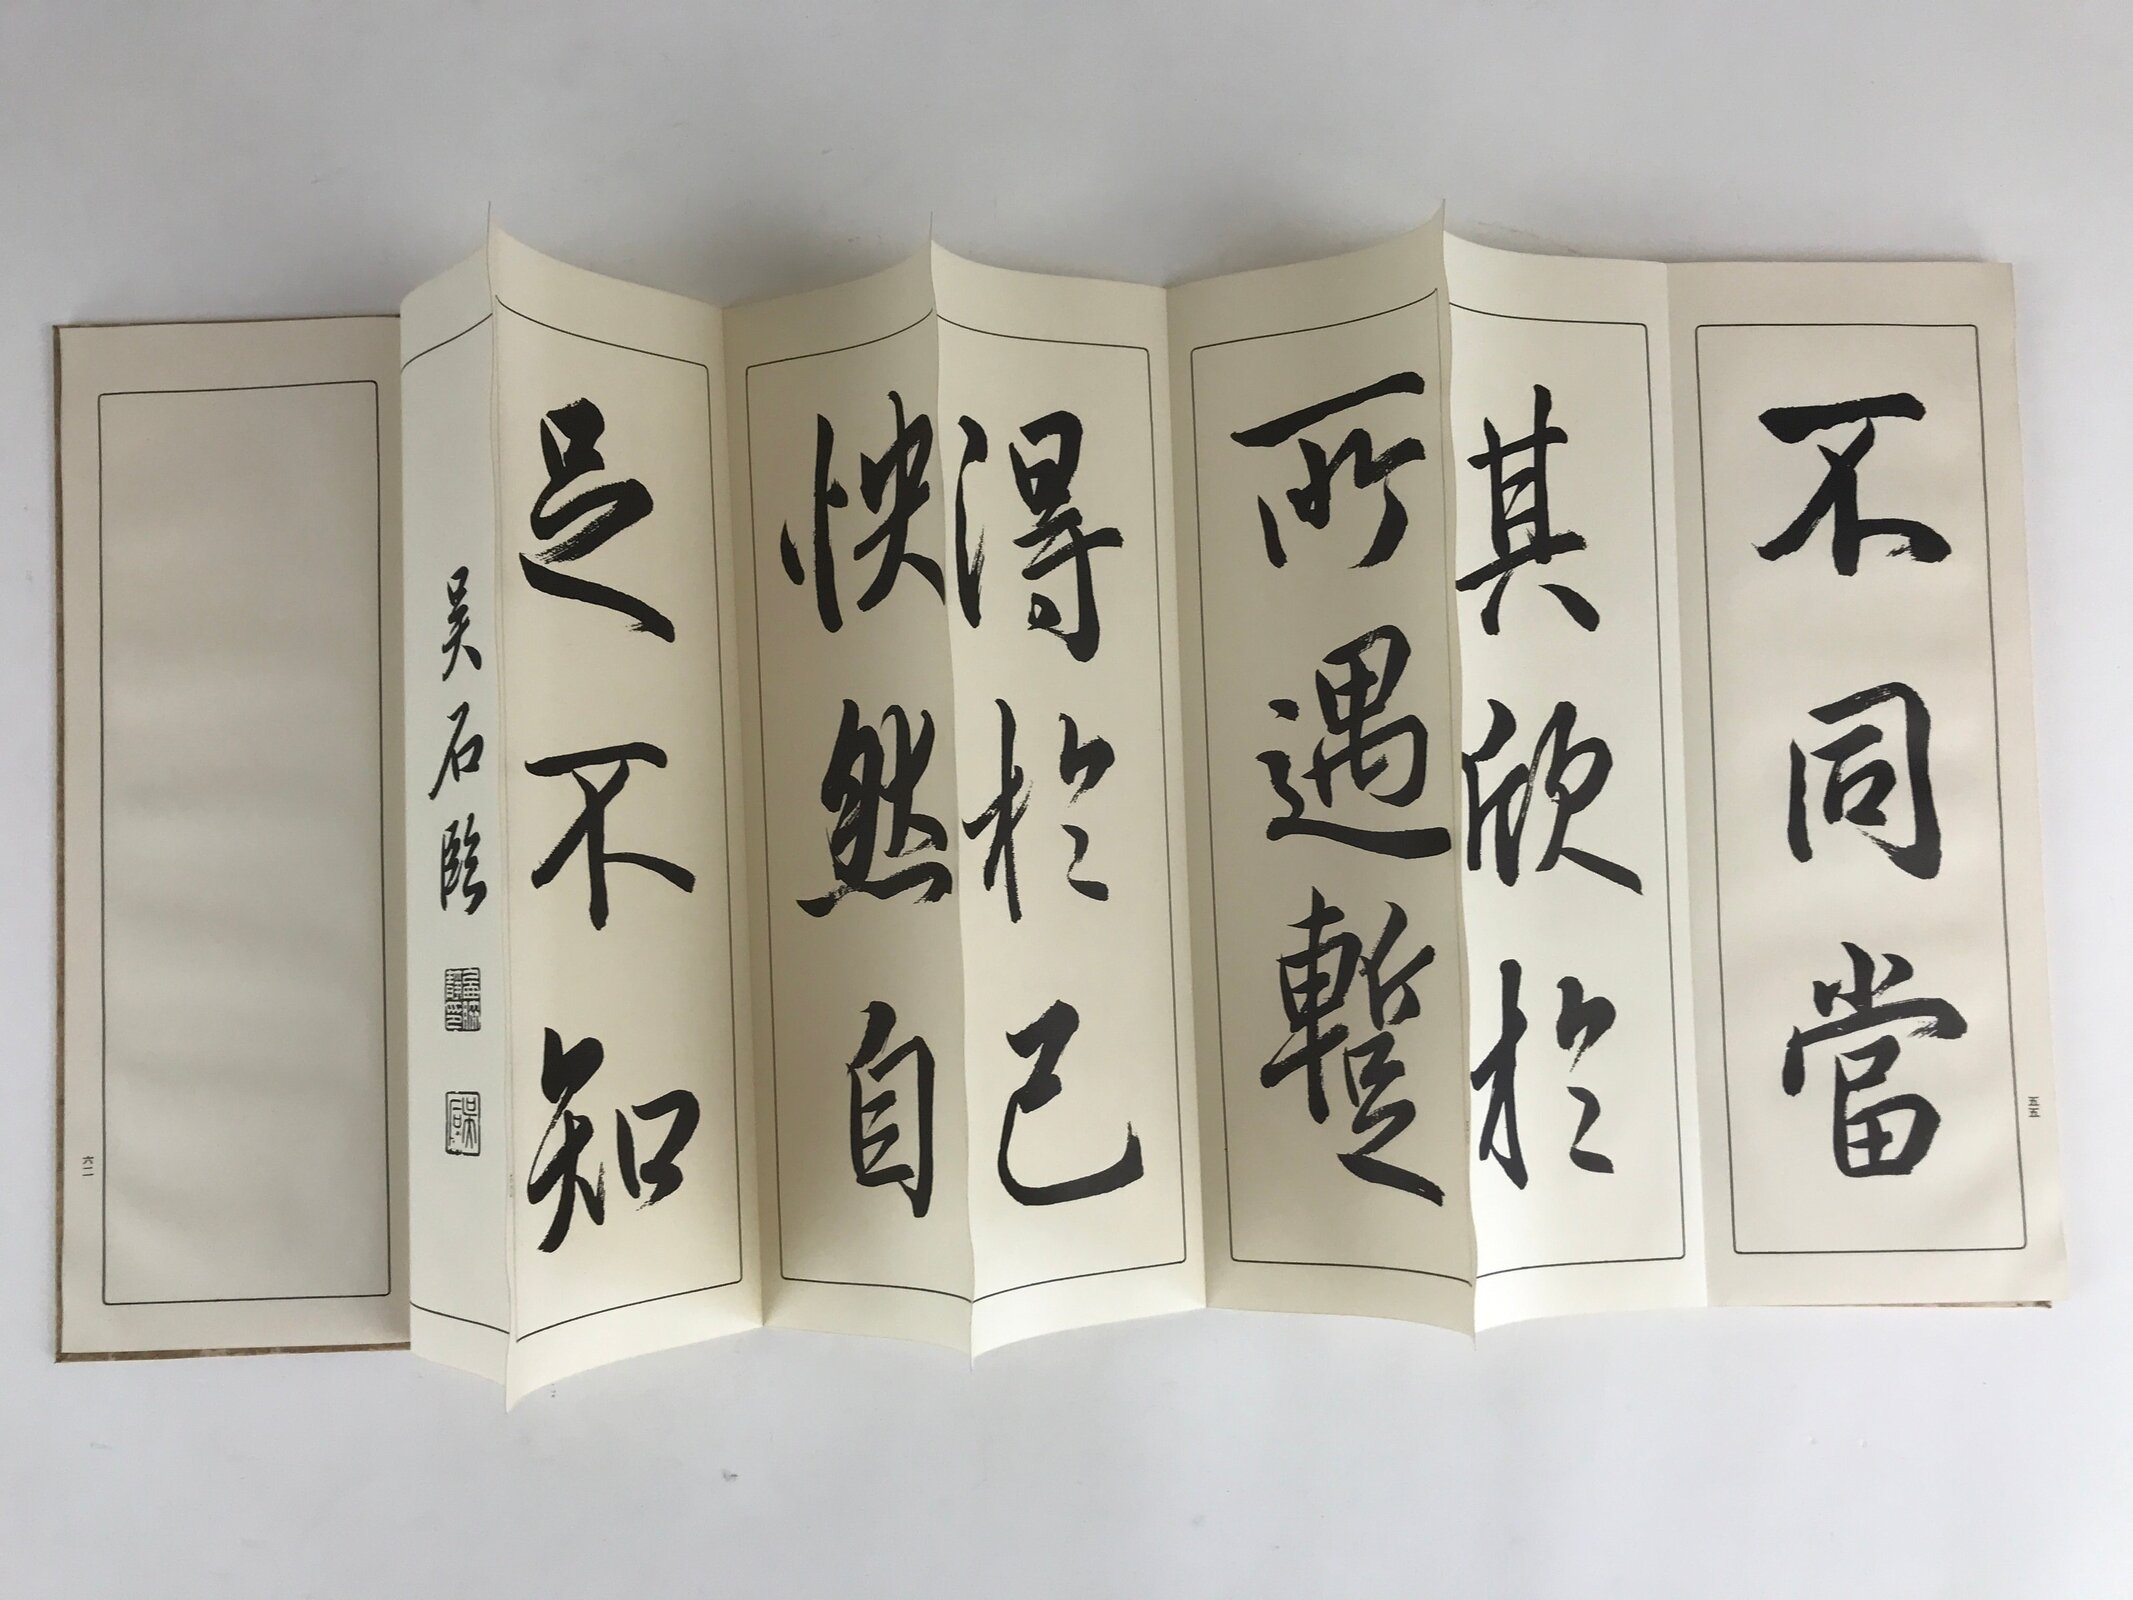 不同當
其欣於
所遇蹔
得於己
怏然自
足不知
吳石臨
五五
六二